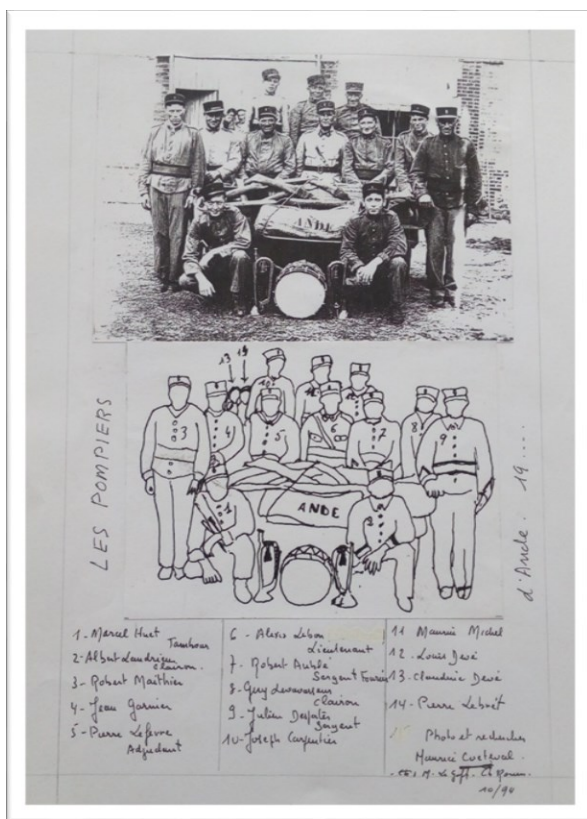 ANDE
13 14
10
3 4 5 6 7 8 9
LES POMPIERS
ANDE
1
d'Ande. 19....
1 - Marcel Huet
Tambour
2 - Albert Landrieu
Clairon.
3 - Robert Maithier
4 - Jean Garnier
5 - Pierre Lefevre
Adjudant
6 - Alexis Lebon
Lieutenant
7 - Robert Aublé
Sergent Fourrier
8 - Guy Levavasseur
Clairon
9 - Julien
Sergent
10 - Joseph Carpentier
11 Maurice Michel
12 - Louis Devé
13 - Claudine Devé
14 - Pierre Lebret
15
Photo et recherches
Maurice
10/90